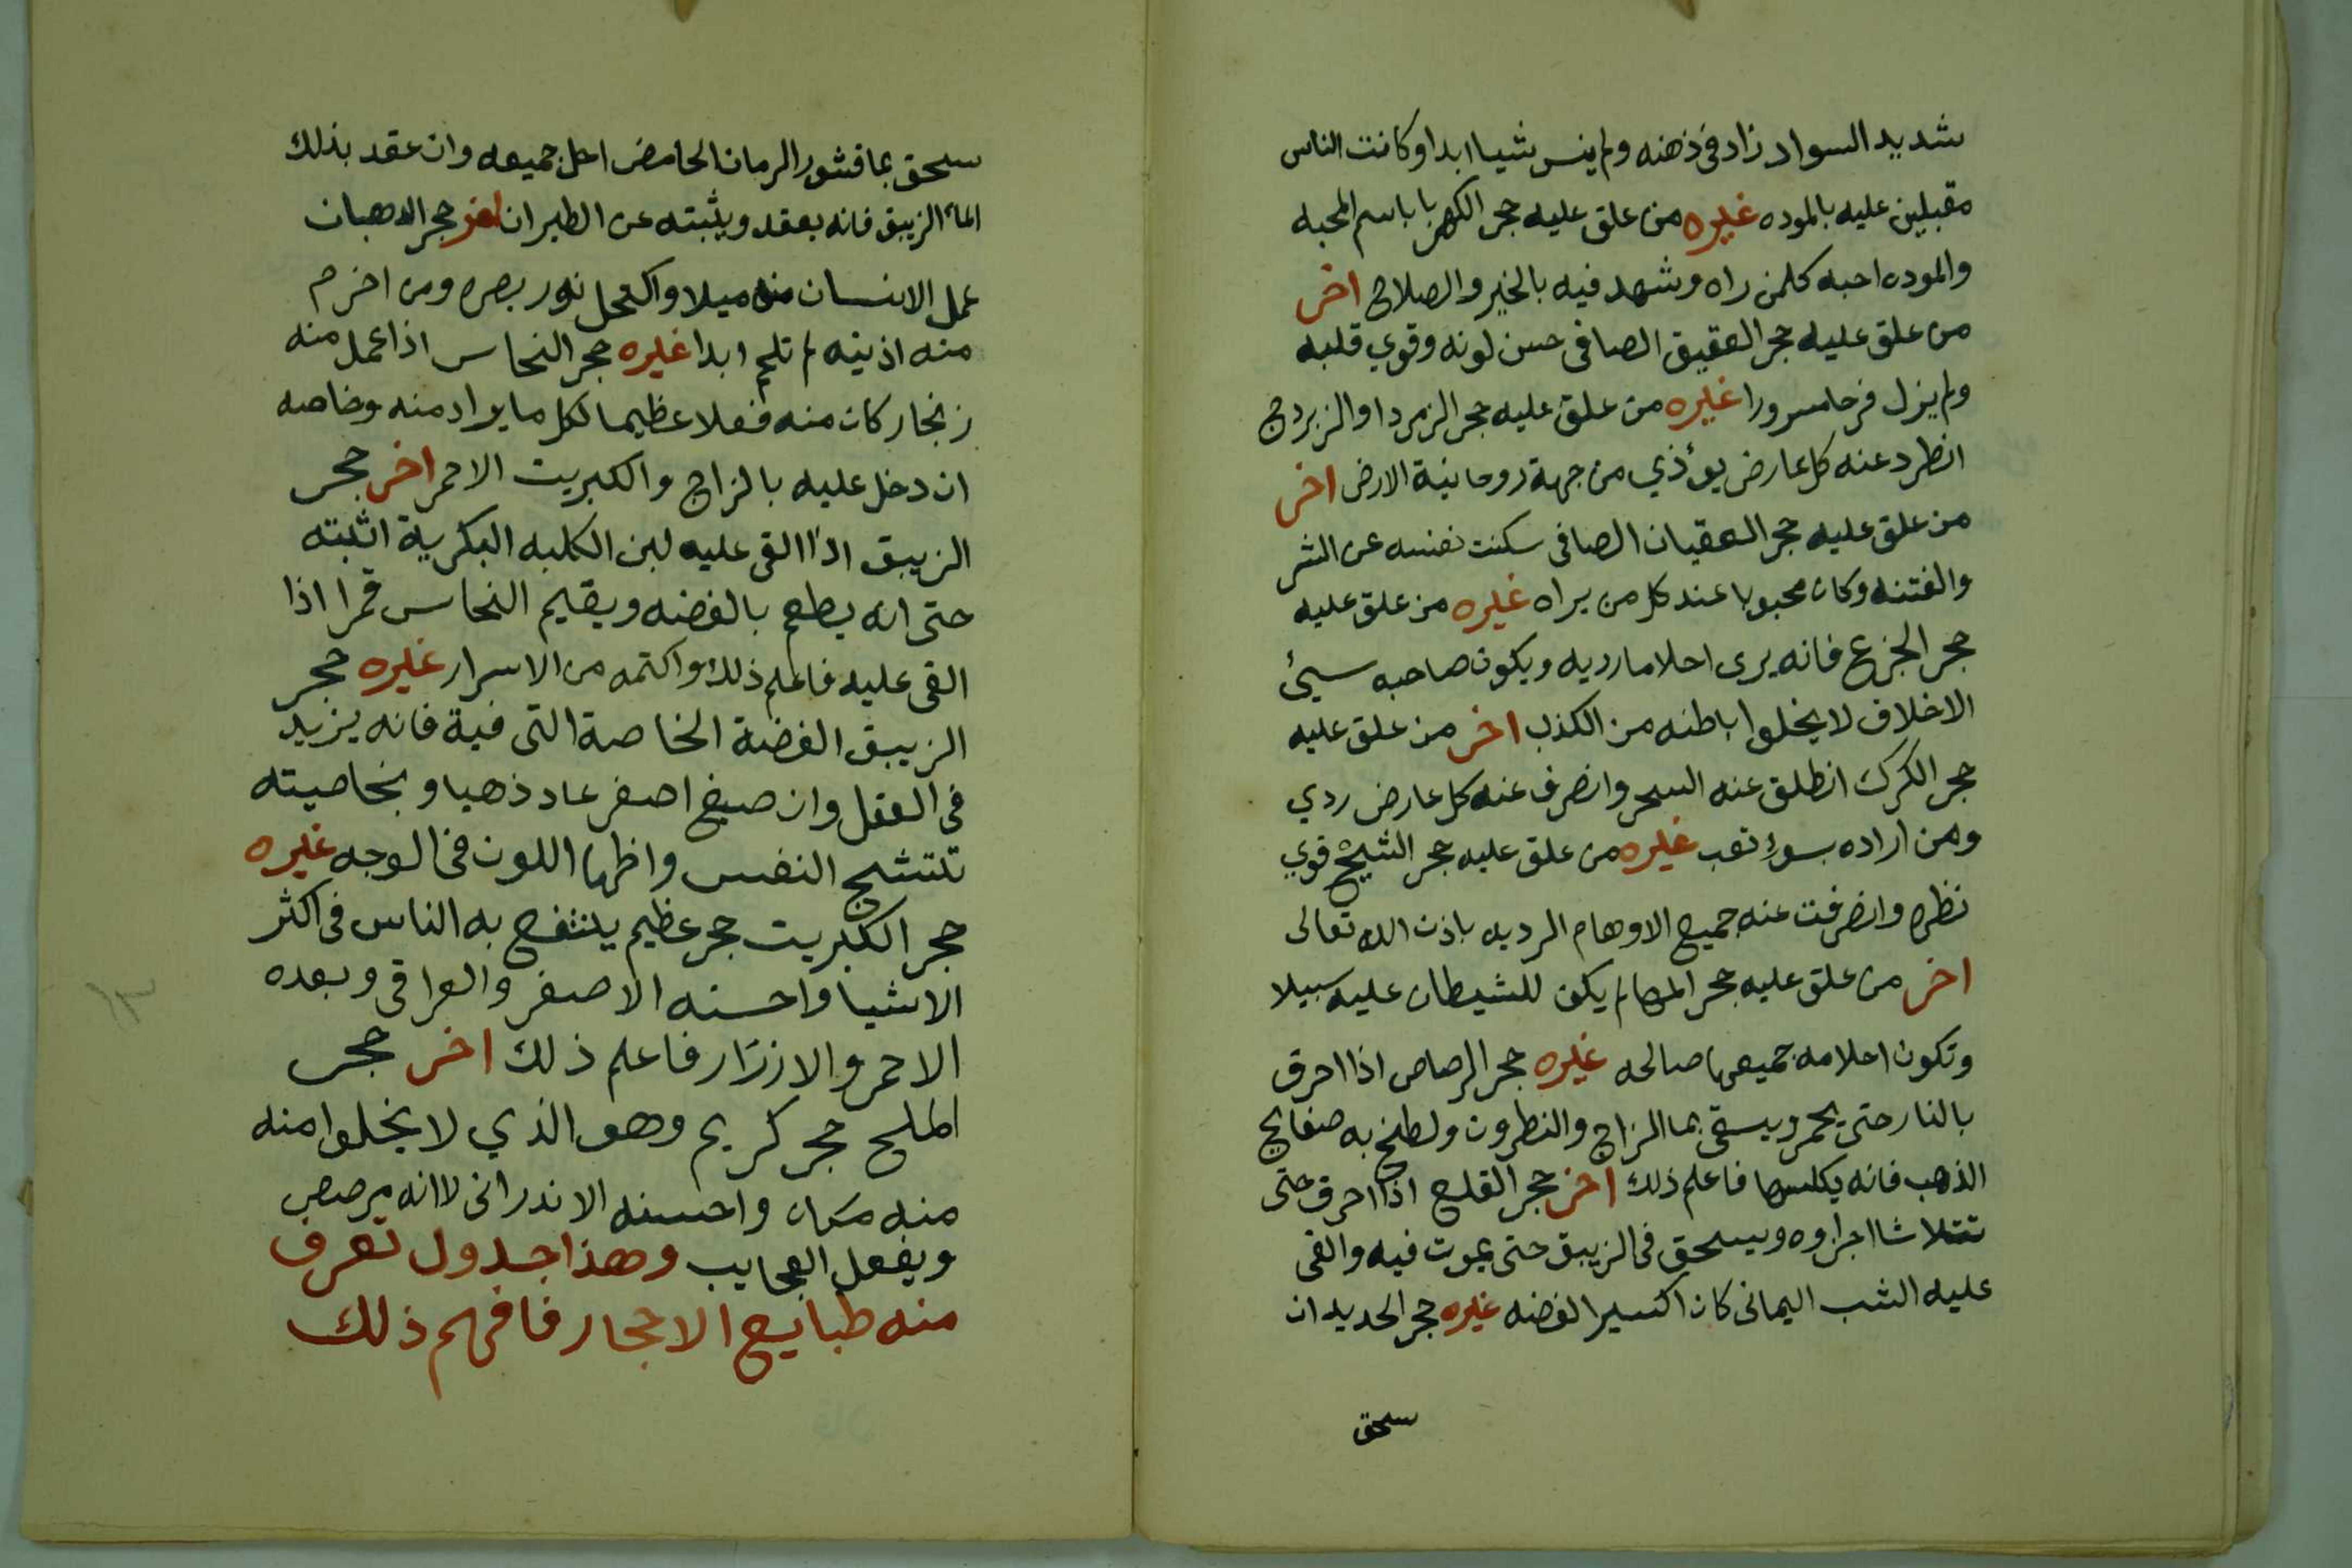 شديد السواد زاد فى ذهنه ولم ينس شيا ابدا وكانت الناس
مقبلين عليه بالموده غيره من علق عليه حجر الكهربا باسم المحبه
والموده احبه كلمن راه وشهد فيه بالخير والصلاح اخر
من علق عليه حجر العقيق الصافى حسن لونه وقوي قلبه
ولم يزل فرحا مسرورا غيره من علق عليه حجر الزمرد او الزبردج
انطرد عنه كل عارض يوءذي من جهة روحانية الارض اخر
من علق عليه حجر العقيان الصافى سكنت نفسه عن الشر
والفتنه وكان محبوبا عند كل من يراه غيره من علق عليه
حجر الجزع فانه يرى احلاما رديه ويكون صاحبه سيئ
الاخلاق لا يخلوا باطنه من الكذب اخر من علق عليه
حجر الكرك انطلق عنه السحر وانصرف عنه كل عارض ردي
ومن اراده بسوء تعب غيره من علق عليه حجر الشيح قوي
نظره وانصرفت عنه جميع الاوهام الرديه باذن الله تعالى
اخر من علق عليه حجر المها لم يكن للشيطان عليه سبيلا
وتكون احلامه جميعها صالحه غيره حجر الرصاص اذا احرق
بالنار حتى يحمر ويسقى بما الزاج والنطرون ولطخ به صفايح
الذهب فانه يكلسها فاعلم ذلك اخر حجر القلع اذا احرق حتى
تتلاشا اجزاوه ويسحق فى الزيبق حتى يموت فيه والقى
عليه الشب اليمانى كان اكسير الفضه غيره حجر الحديد ان
سحق
سحق بما قشور الرمان الحامض احل جميعه وان عقد بذلك
الماء الزيبق فانه يعقد ويثبته عن الطيران اخر حجر الدهبان
عمل الانسان منه ميلا واكتحل نور بصره ومن اخرم
منه اذنيه لم تلحم ابدا غيره حجر النحاس اذا عمل منه
زنجار كان منه فعلا عظيما لكل ما يراد منه وخاصه
ان دخل عليه بالزاج والكبريت الاحمر اخر حجر
الزيبق اذا القى عليه لبن الكلبه البكرية اثبته
حتى انه يطعم بالفضه ويقيم النحاس قمرا اذا
القى عليه فاعلم ذلك واكتمه من الاسرار غيره حجر
الزيبق الفضة الخاصة التى فية فانه يزيد
فى العقل وان صبغ اصفر عاد ذهبا وبخاصيته
تتشجع النفس واظهار اللون فى الوجه غيره
حجر الكبريت حجر عظيم ينتفع به الناس فى اكثر
الاشيا واحسنه الاصفر والعراقى وبعده
الاحمر والازرار فاعلم ذلك اخر حجر
الملح حجر كريم وهو الذي لا يخلوا منه
منه مكان واحسنه الاندرانى لاانه يرصص
ويفعل العجايب وهذا جدول تعرف
منه طبايع الاحجار فافهم ذلك